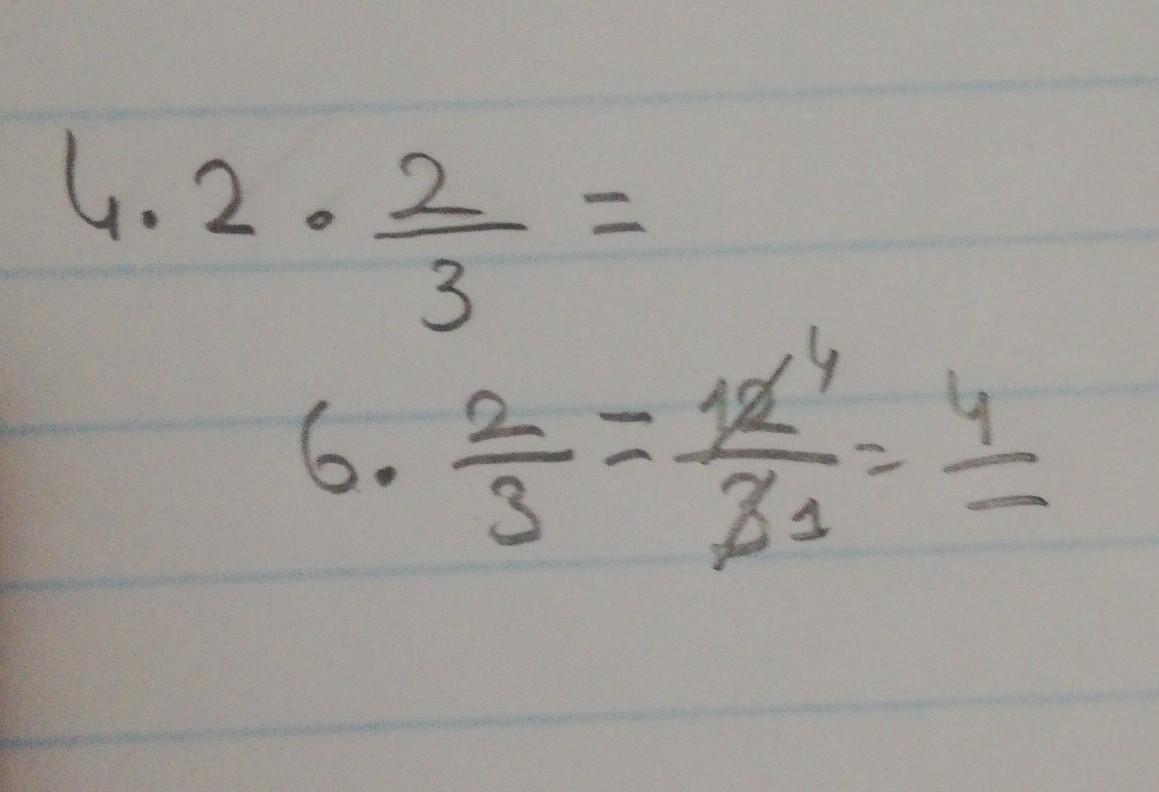 4. 2 · 2/3 =
6. 2/3 = 12/3 4 1 = 4